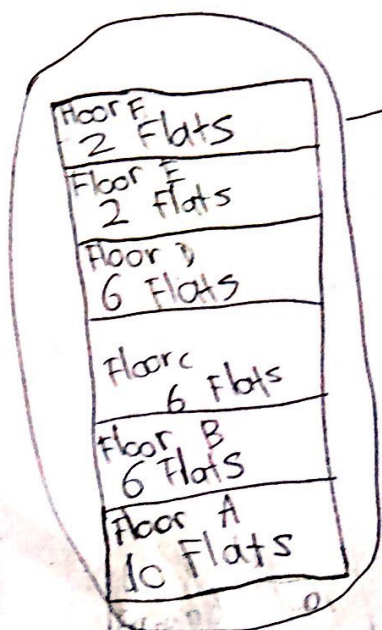 Floor F
2 Flats
Floor E
2 Flats
Floor D
6 Flats
Floor c
6 Flats
Floor B
6 Flats
Floor A
10 Flats